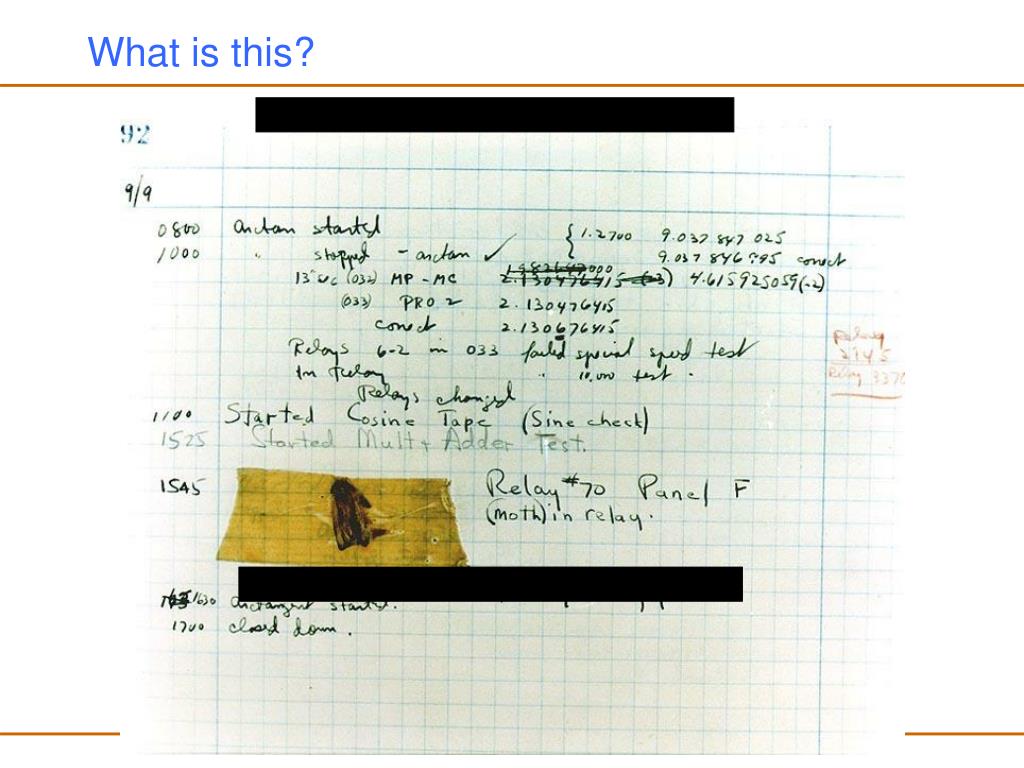 What is this?
92
9/9
0800 arctan started
1000 " stopped - arctan ✓ { 1.2700 9.037 847 025
9.037 846 995 correct
13"uc (032) MP - MC 4.615925059(-2)
(033) PRO 2 2.130476415
correct 2.130676415
Relays 6-2 in 033 failed special speed test
In relay " 10.000 test .
Relay
2145
Relay 3370
Relays changed
1100 Started Cosine Tape (Sine check)
1525 Started Mult + Adder Test.
1545 Relay #70 Panel F
(moth) in relay.
1630 arctangent started.
1700 closed down .